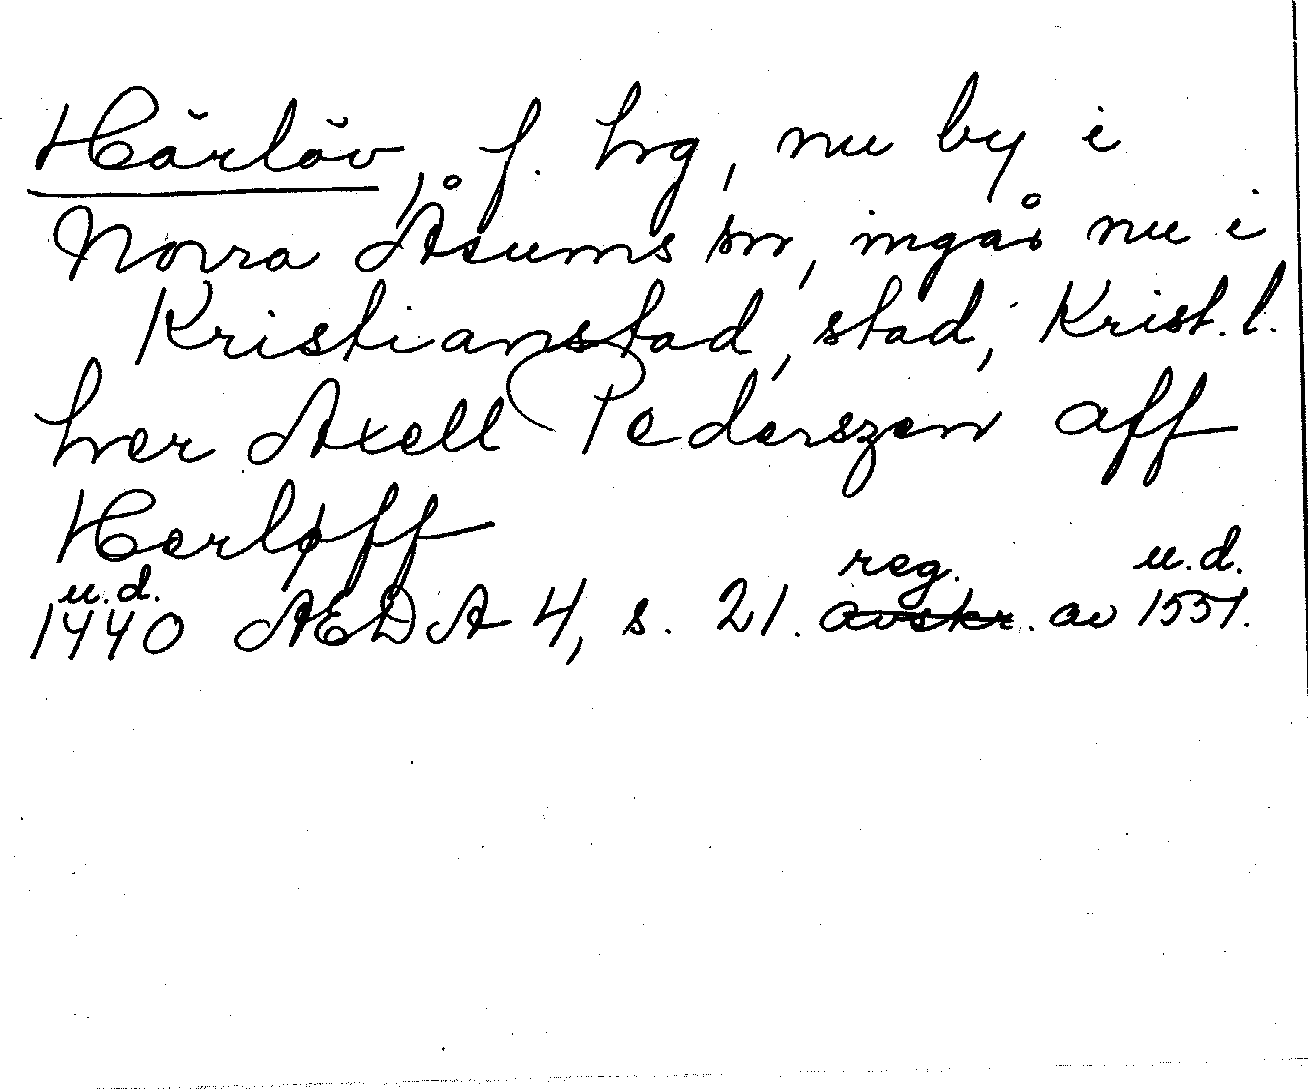 Härlöv, f. hrg, nu by i
Norra Åsums sn, ingår nu i
Kristianstad, stad, Krist. l.
her Axell Pederszen aff
Herløff
u.d. reg. u.d.
1440 AEDA 4, s. 21. avskr. av 1551.